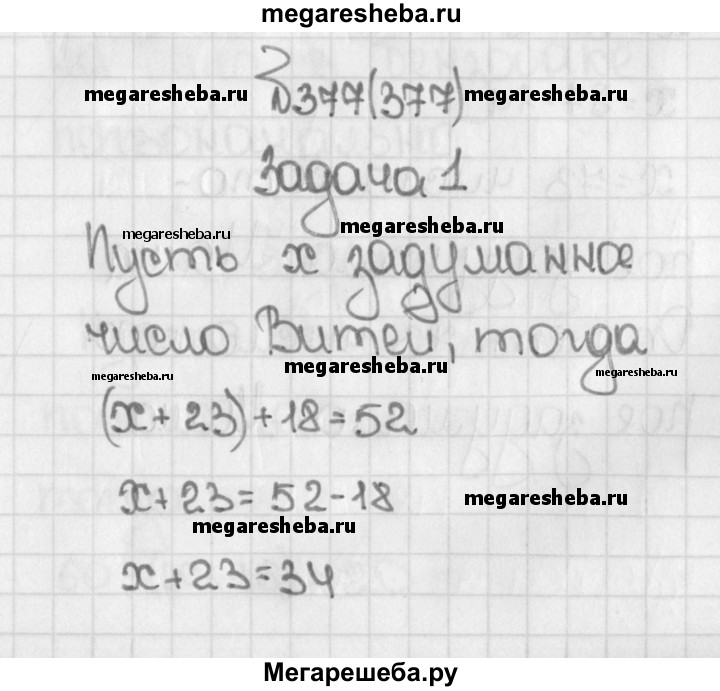 megaresheba.ru
№377(377)
megaresheba.ru megaresheba.ru
Задача 1
megaresheba.ru
megaresheba.ru
Пусть x задуманное
число Витей, тогда
megaresheba.ru
megaresheba.ru
megaresheba.ru
(x+23)+18=52
x+23=52-18
megaresheba.ru
megaresheba.ru
x+23=34
Мегарешеба.ру